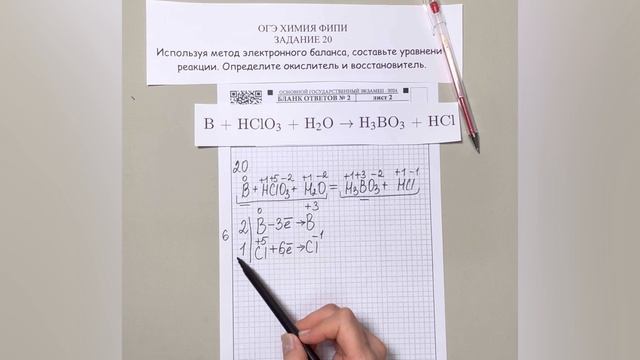 ОГЭ ХИМИЯ ФИПИ
ЗАДАНИЕ 20
Используя метод электронного баланса, составьте уравнени
реакции. Определите окислитель и восстановитель.
ОСНОВНОЙ ГОСУДАРСТВЕННЫЙ ЭКЗАМЕН - 2024
БЛАНК ОТВЕТОВ № 2 лист 2
B + HClO₃ + H₂O → H₃BO₃ + HCl
20
0 +1+5-2 +1 -2 +1+3-2 +1-1
B + HClO₃ + H₂O = H₃BO₃ + HCl
0 +3
2 | B - 3ē → B
6
+5 -1
1 | Cl + 6ē → Cl